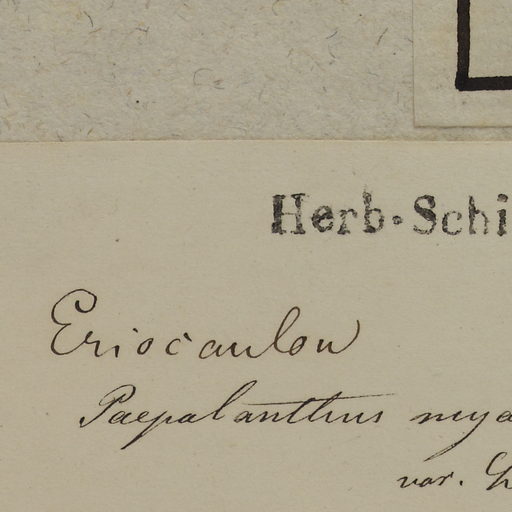 Herb-Schi
Eriocaulon
Paepalanthus
var.